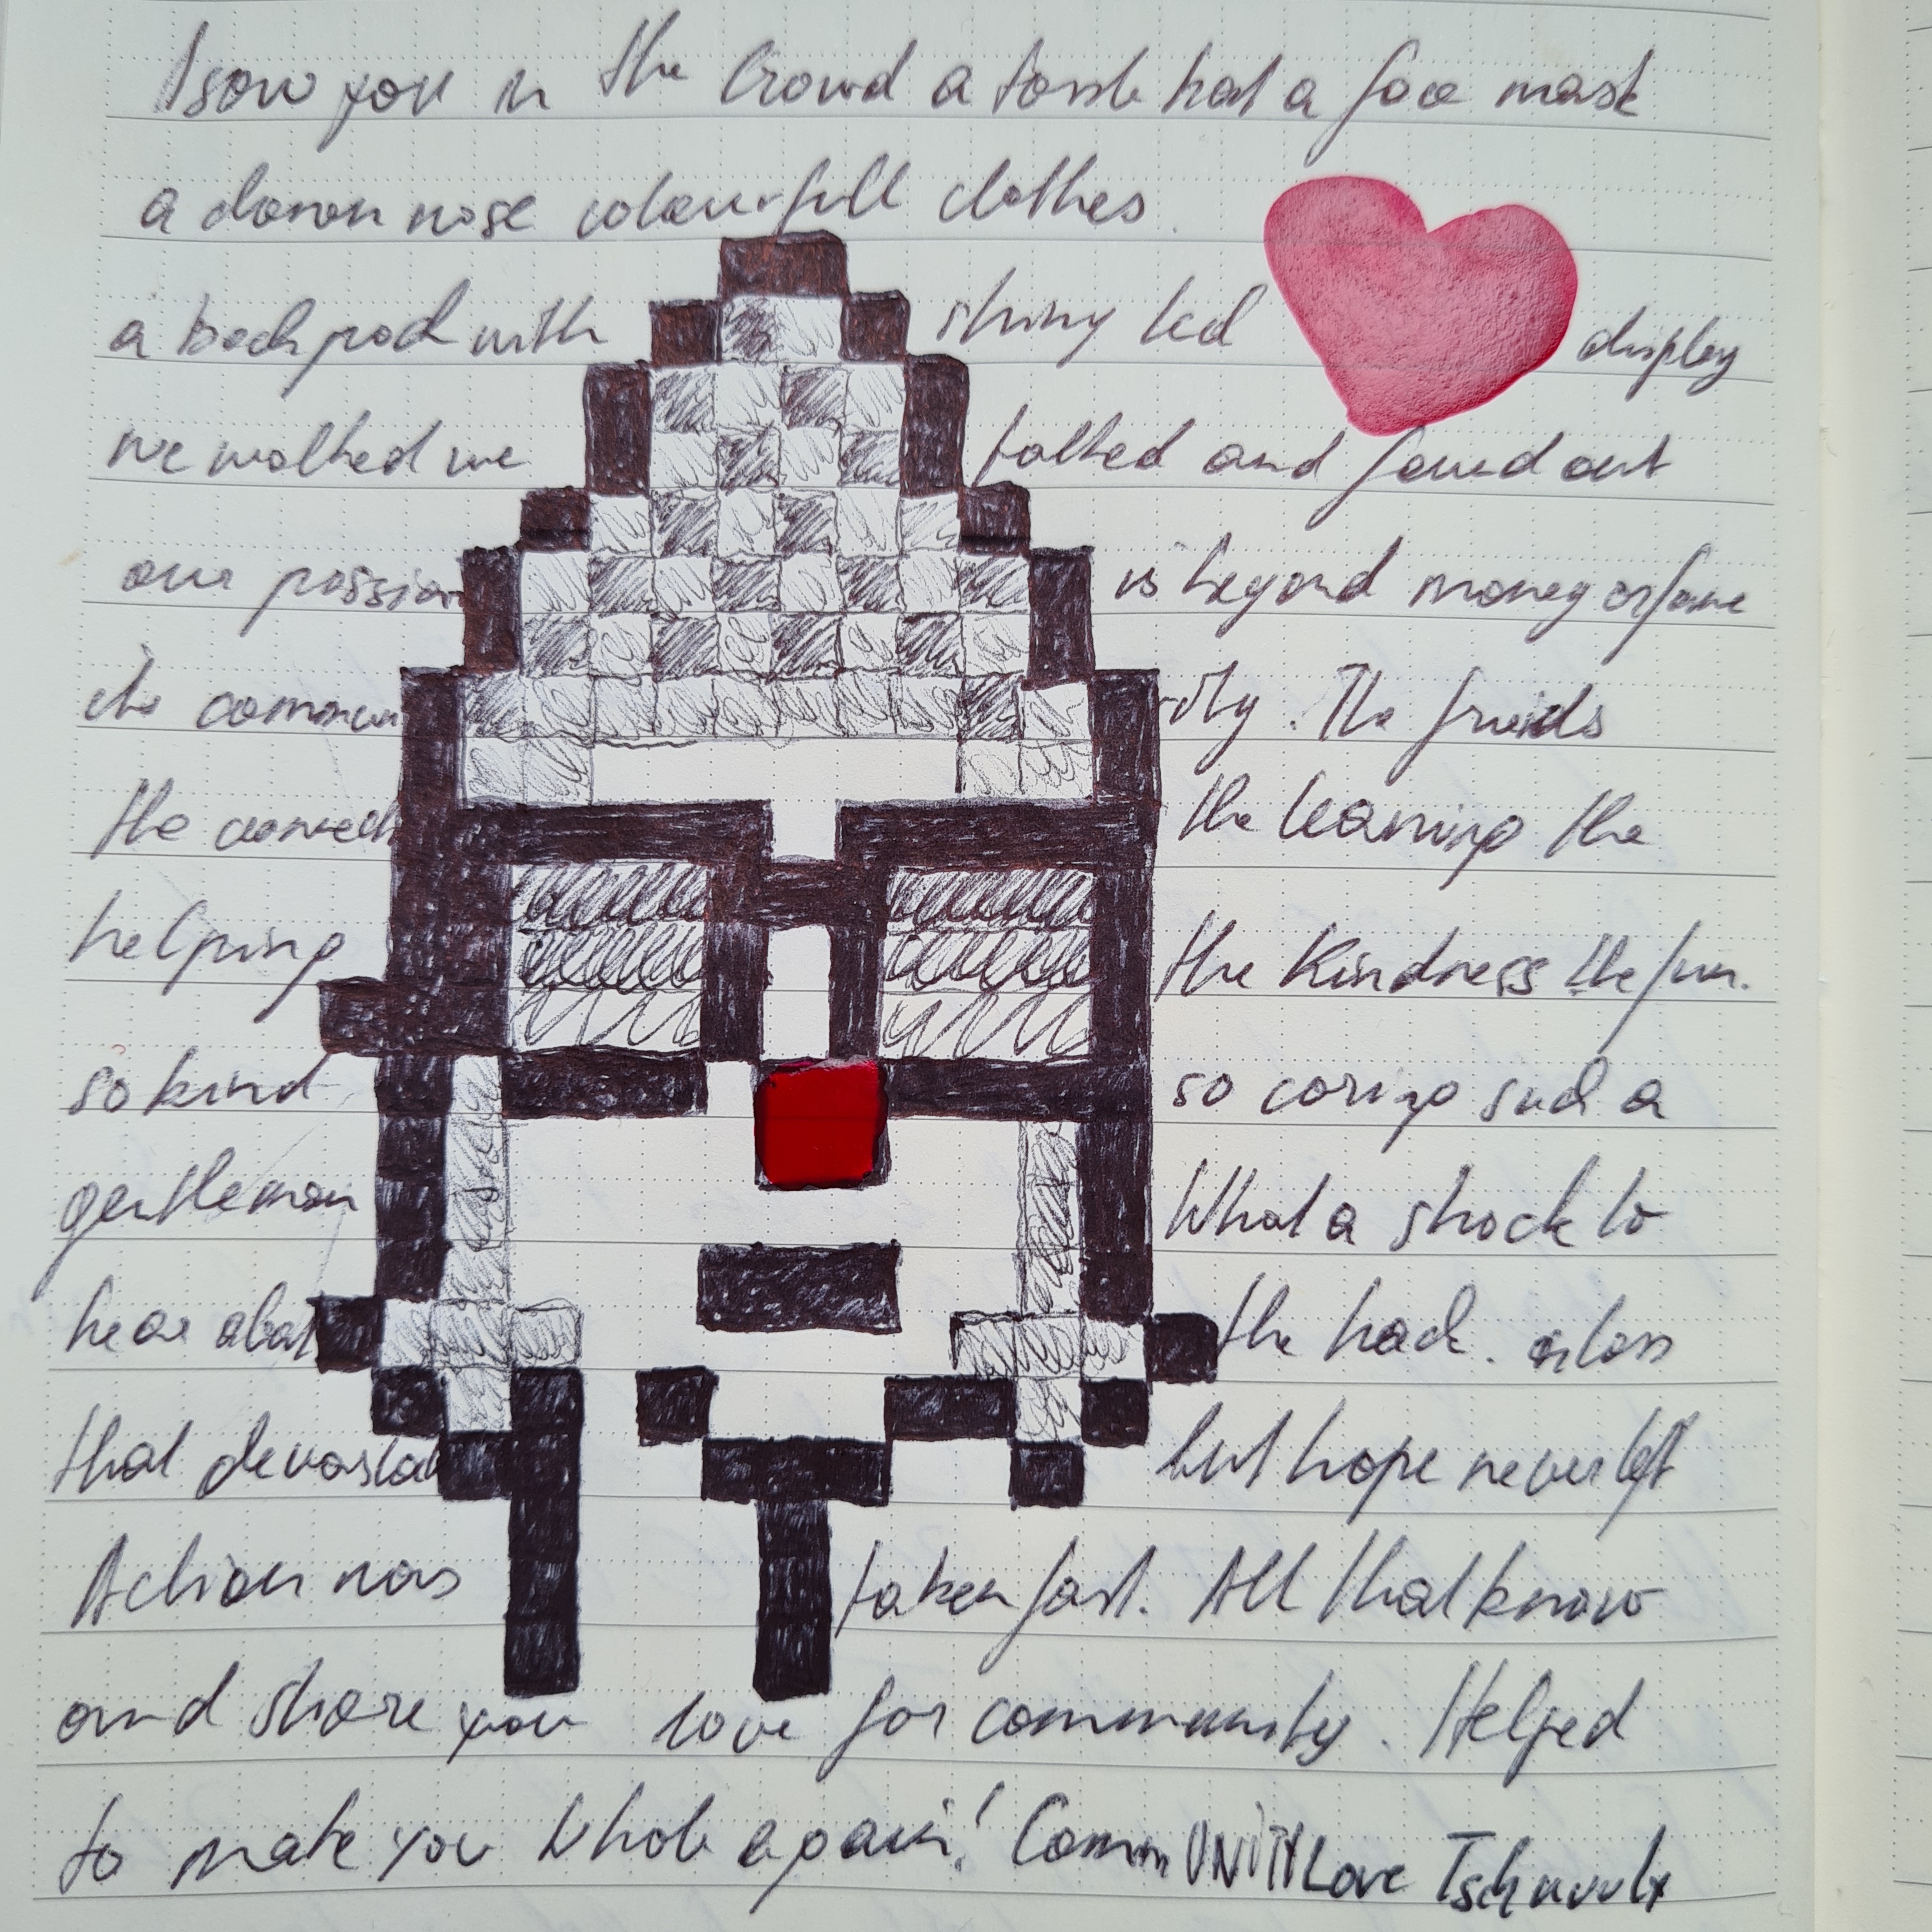 I saw you in the Crowd a tassle hat a face mask
a clown nose colourfull clothes.
a backpack with shiny led display
we walked we talked and found out
our passion is beyond money or fame
the community. The friends
the connect the learning the
helping the Kindness the fun.
so kind so caring such a
gentleman What a shock to
hear about the hack. a loss
that devastat but hope never left
Action was taken fast. All that know
and share you love for community. Helped
to make you Whole again! CommUNITYLove